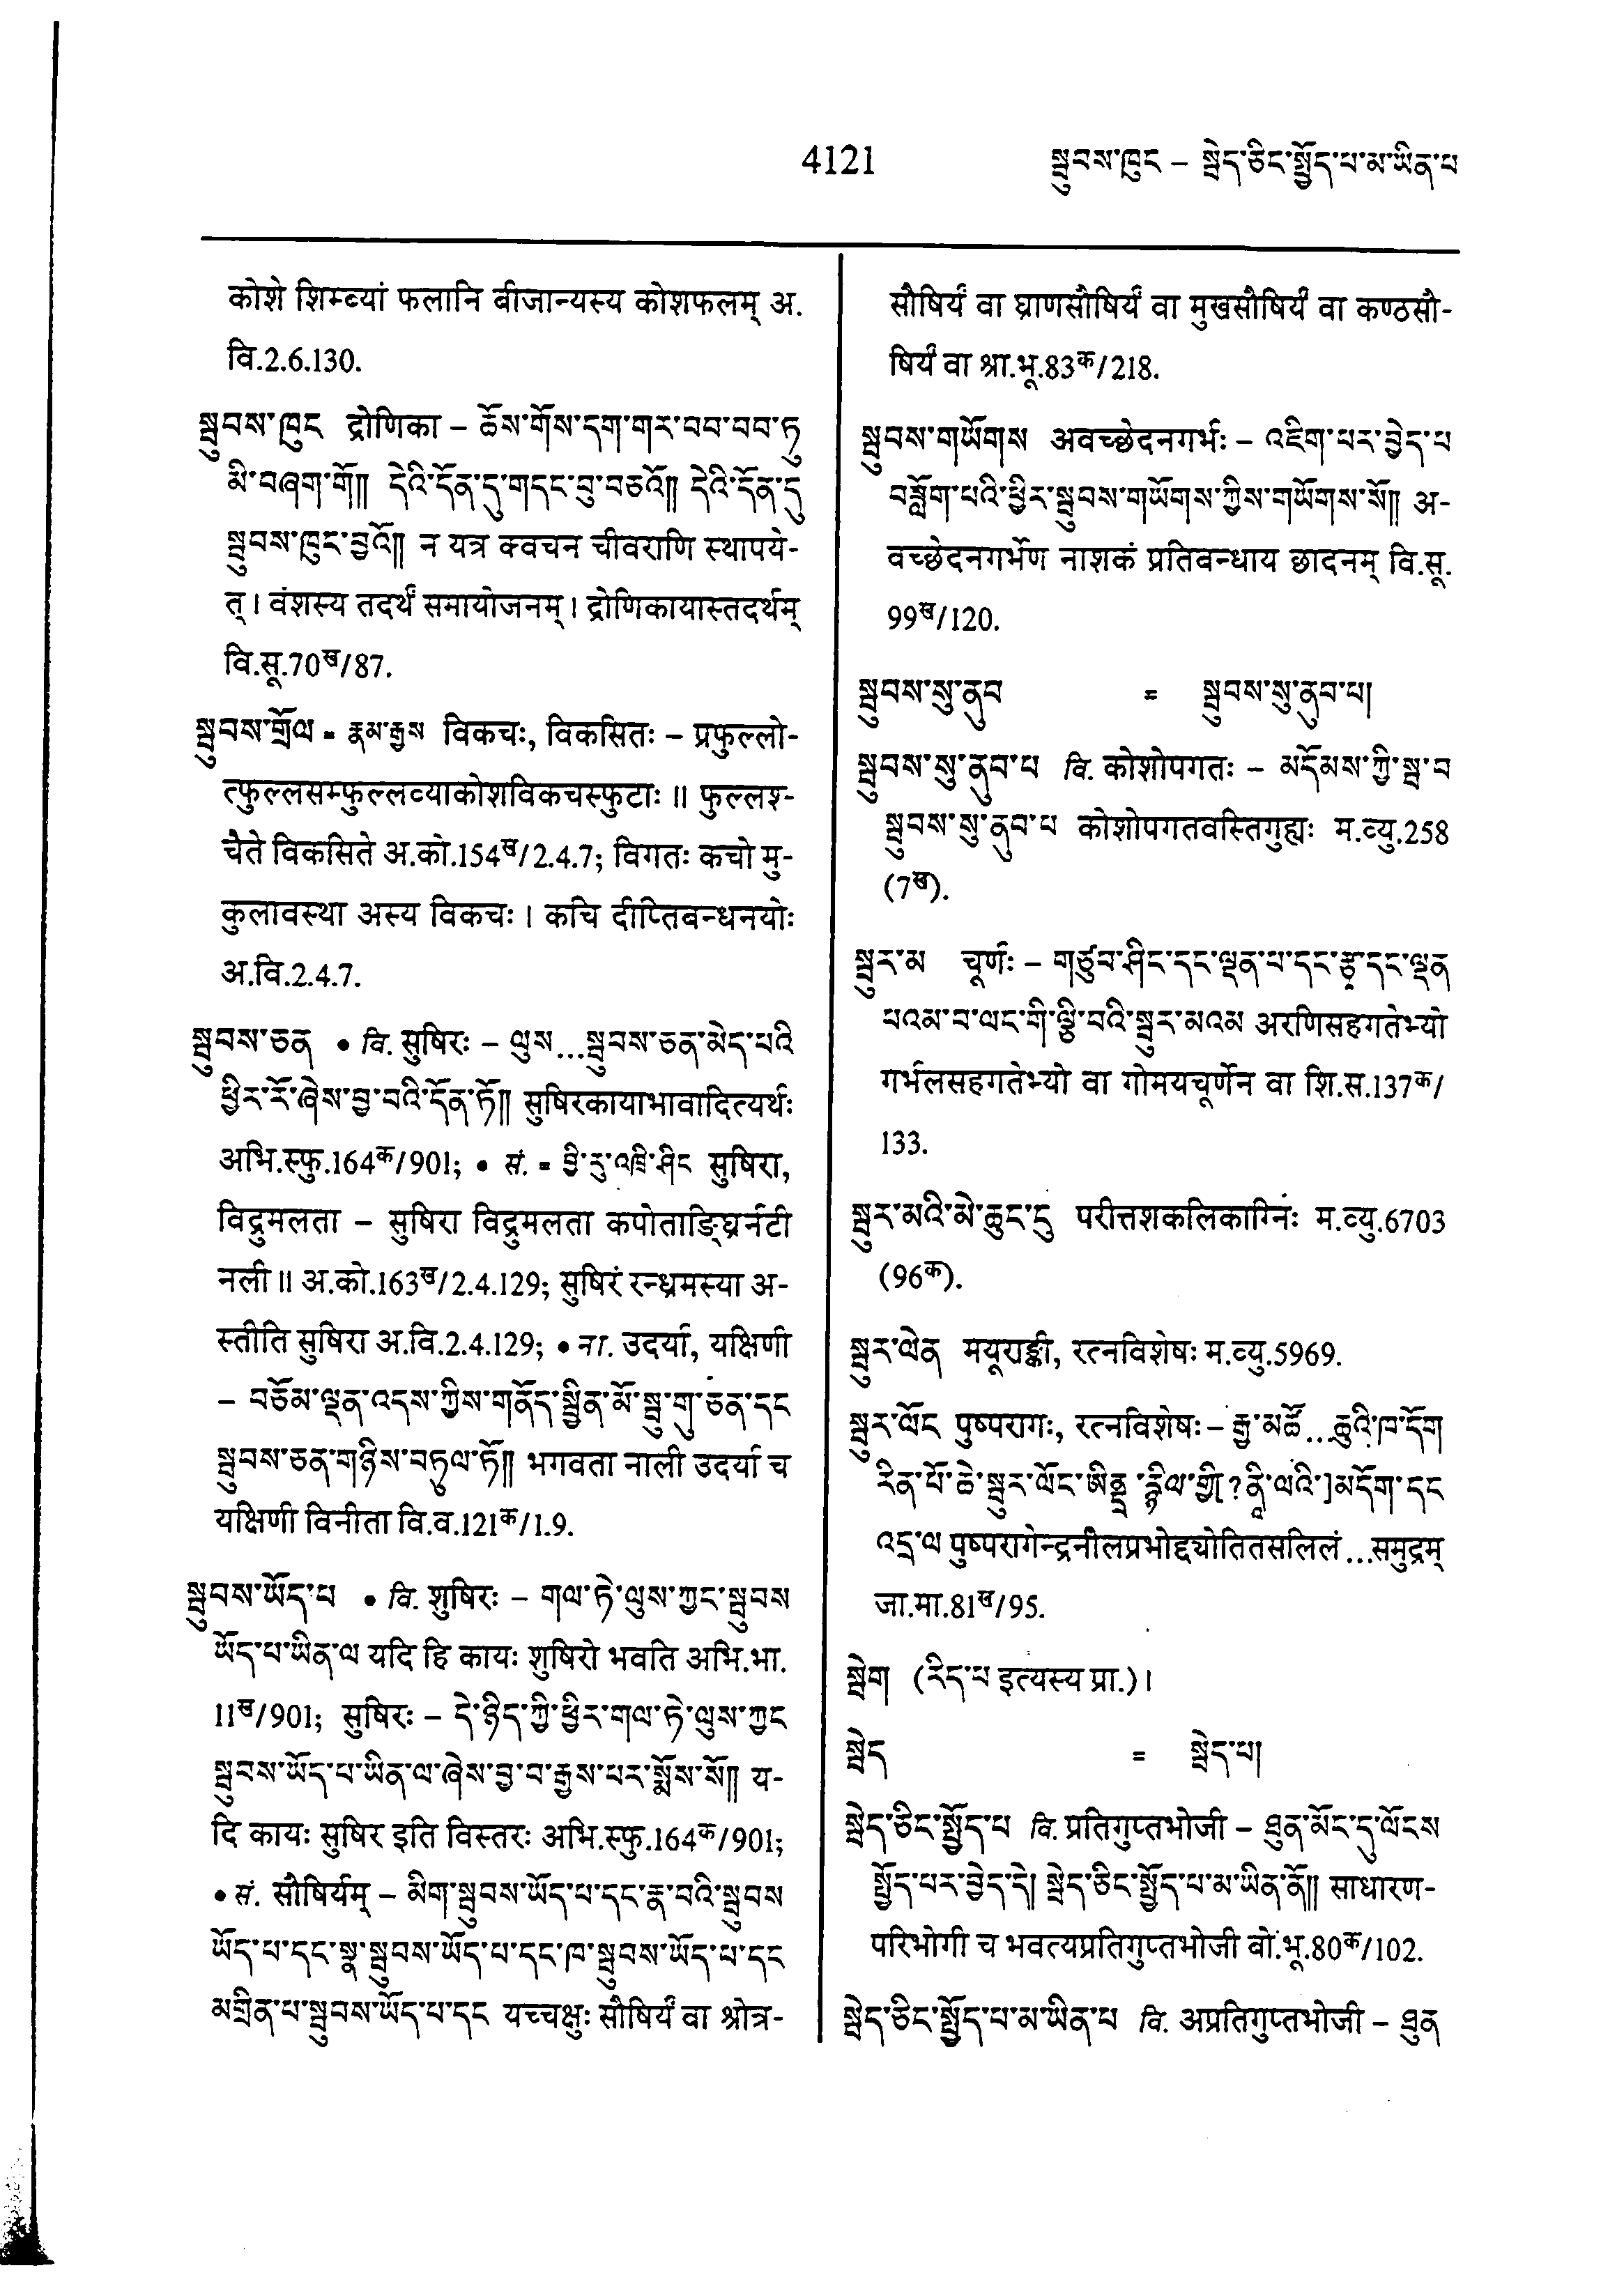 4121 སྦུབས་ཁུང – སྦེད་ཅིང་སྤྱོད་པ་མ་ཡིན་པ
कोशे शिम्ब्यां फलानि बीजान्यस्य कोशफलम् अ.
वि.2.6.130.
སྦུབས་ཁུང द्रोणिका – ཆོས་གོས་དག་གར་བབ་བབ་ཏུ
མི་བཞག་གོ།། དེའི་དོན་དུ་གདང་བུ་བཅའོ།། དེའི་དོན་དུ
སྦུབས་ཁུང་བྱའོ།། न यत्र क्वचन चीवराणि स्थापये-
त्। वंशस्य तदर्थं समायोजनम्। द्रोणिकायास्तदर्थम्
वि.सू.70ख/87.
སྦུབས་གྲོལ = རྣམ་རྒྱས विकचः, विकसितः – प्रफुल्लो-
त्फुल्लसम्फुल्लव्याकोशविकचस्फुटाः॥ फुल्लश्-
चैते विकसिते अ.को.154ख/2.4.7; विगतः कचो मु-
कुलावस्था अस्य विकचः। कचि दीप्तिबन्धनयोः
अ.वि.2.4.7.
སྦུབས་ཅན • वि. सुषिरः – ལུས...སྦུབས་ཅན་མེད་པའི
ཕྱིར་རོ་ཞེས་བྱ་བའི་དོན་ཏོ།། सुषिरकायाभावादित्यर्थः
अभि.स्फु.164क/901; • सं. = བྱི་རུ་འཁྲི་ཤིང सुषिरा,
विद्रुमलता – सुषिरा विद्रुमलता कपोताङ्घ्रिर्नटी
नली॥ अ.को.163ख/2.4.129; सुषिरं रन्ध्रमस्या अ-
स्तीति सुषिरा अ.वि.2.4.129; • ना. उदर्या, यक्षिणी
– བཅོམ་ལྡན་འདས་ཀྱིས་གནོད་སྦྱིན་མོ་སྦུ་གུ་ཅན་དང
སྦུབས་ཅན་གཉིས་བཏུལ་ཏོ།། भगवता नाली उदर्या च
यक्षिणी विनीता वि.व.121क/1.9.
སྦུབས་ཡོད་པ • वि. शुषिरः – གལ་ཏེ་ལུས་ཀྱང་སྦུབས
ཡོད་པ་ཡིན་ལ यदि हि कायः शुषिरो भवति अभि.भा.
11ख/901; सुषिरः – དེ་ཉིད་ཀྱི་ཕྱིར་གལ་ཏེ་ལུས་ཀྱང
སྦུབས་ཡོད་པ་ཡིན་ལ་ཞེས་བྱ་བ་རྒྱས་པར་སྨོས་སོ།། य-
दि कायः सुषिर इति विस्तरः अभि.स्फु.164क/901;
• सं. सौषिर्यम् – མིག་སྦུབས་ཡོད་པ་དང་རྣ་བའི་སྦུབས
ཡོད་པ་དང་སྣ་སྦུབས་ཡོད་པ་དང་ཁ་སྦུབས་ཡོད་པ་དང
མགྲིན་པ་སྦུབས་ཡོད་པ་དང यच्चक्षुः सौषिर्यं वा श्रोत्र-
सौषिर्यं वा घ्राणसौषिर्यं वा मुखसौषिर्यं वा कण्ठसौ-
षिर्यं वा श्रा.भू.83क/218.
སྦུབས་གཡོགས अवच्छेदनगर्भः – འཇིག་པར་བྱེད་པ
བཟློག་པའི་ཕྱིར་སྦུབས་གཡོགས་ཀྱིས་གཡོགས་སོ།། अ-
वच्छेदनगर्भेण नाशकं प्रतिबन्धाय छादनम् वि.सू.
99ख/120.
སྦུབས་སུ་ནུབ = སྦུབས་སུ་ནུབ་པ།
སྦུབས་སུ་ནུབ་པ वि. कोशोपगतः – མདོམས་ཀྱི་སྦ་བ
སྦུབས་སུ་ནུབ་པ कोशोपगतवस्तिगुह्यः म.व्यु.258
(7ख).
སྦུར་མ चूर्णः – གཙུབ་ཤིང་དང་ལྡན་པ་དང་རྩྭ་དང་ལྡན
པའམ་བ་ལང་གི་ལྕི་བའི་སྦུར་མའམ अरणिसहगतेभ्यो
गर्भलसहगतेभ्यो वा गोमयचूर्णेन वा शि.स.137क/
133.
སྦུར་མའི་མེ་ཆུང་དུ परीत्तशकलिकाग्निः म.व्यु.6703
(96क).
སྦུར་ལེན मयूराङ्की, रत्नविशेषः म.व्यु.5969.
སྦུར་ལོང पुष्परागः, रत्नविशेषः – རྒྱ་མཚོ...ཆུའི་ཁ་དོག
རིན་པོ་ཆེ་སྦུར་ལོང་ཨིནྡྲ་རྙིལ་གྱི(?ནཱི་ལའི་)མདོག་དང
འདྲ་ལ पुष्परागेन्द्रनीलप्रभोद्द्योतितसलिलं...समुद्रम्
जा.मा.81ख/95.
སྦེག (རིད་པ इत्यस्य प्रा.)।
སྦེད = སྦེད་པ།
སྦེད་ཅིང་སྤྱོད་པ वि. प्रतिगुप्तभोजी – ཐུན་མོང་དུ་ལོངས
སྤྱོད་པར་བྱེད་དེ། སྦེད་ཅིང་སྤྱོད་པ་མ་ཡིན་ནོ།། साधारण-
परिभोगी च भवत्यप्रतिगुप्तभोजी बो.भू.80क/102.
སྦེད་ཅིང་སྤྱོད་པ་མ་ཡིན་པ वि. अप्रतिगुप्तभोजी – ཐུན